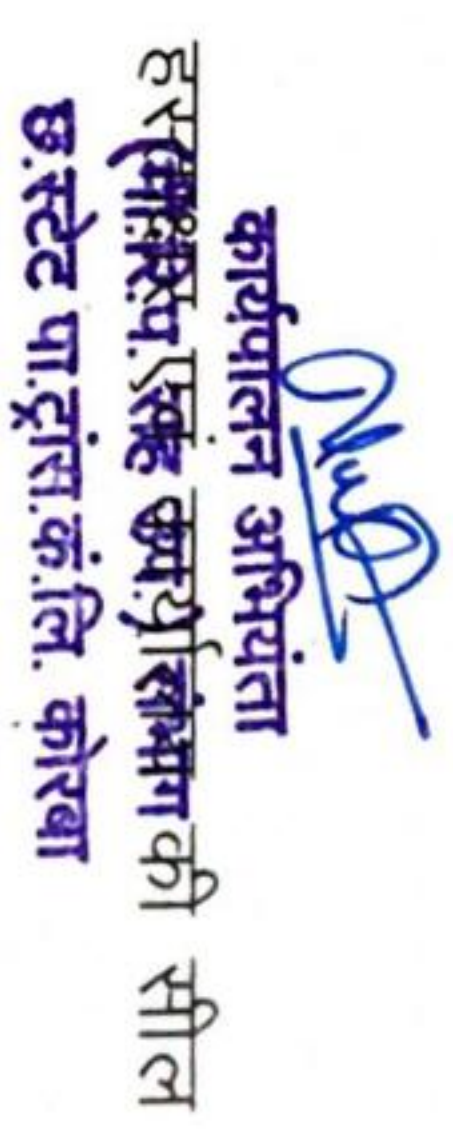 कार्यपालन अभियंता
हस्ताक्षर एवं कार्यालय की सील
संभाग
छ.स्टेट पा.ट्रांस.कं.लि. कोरबा